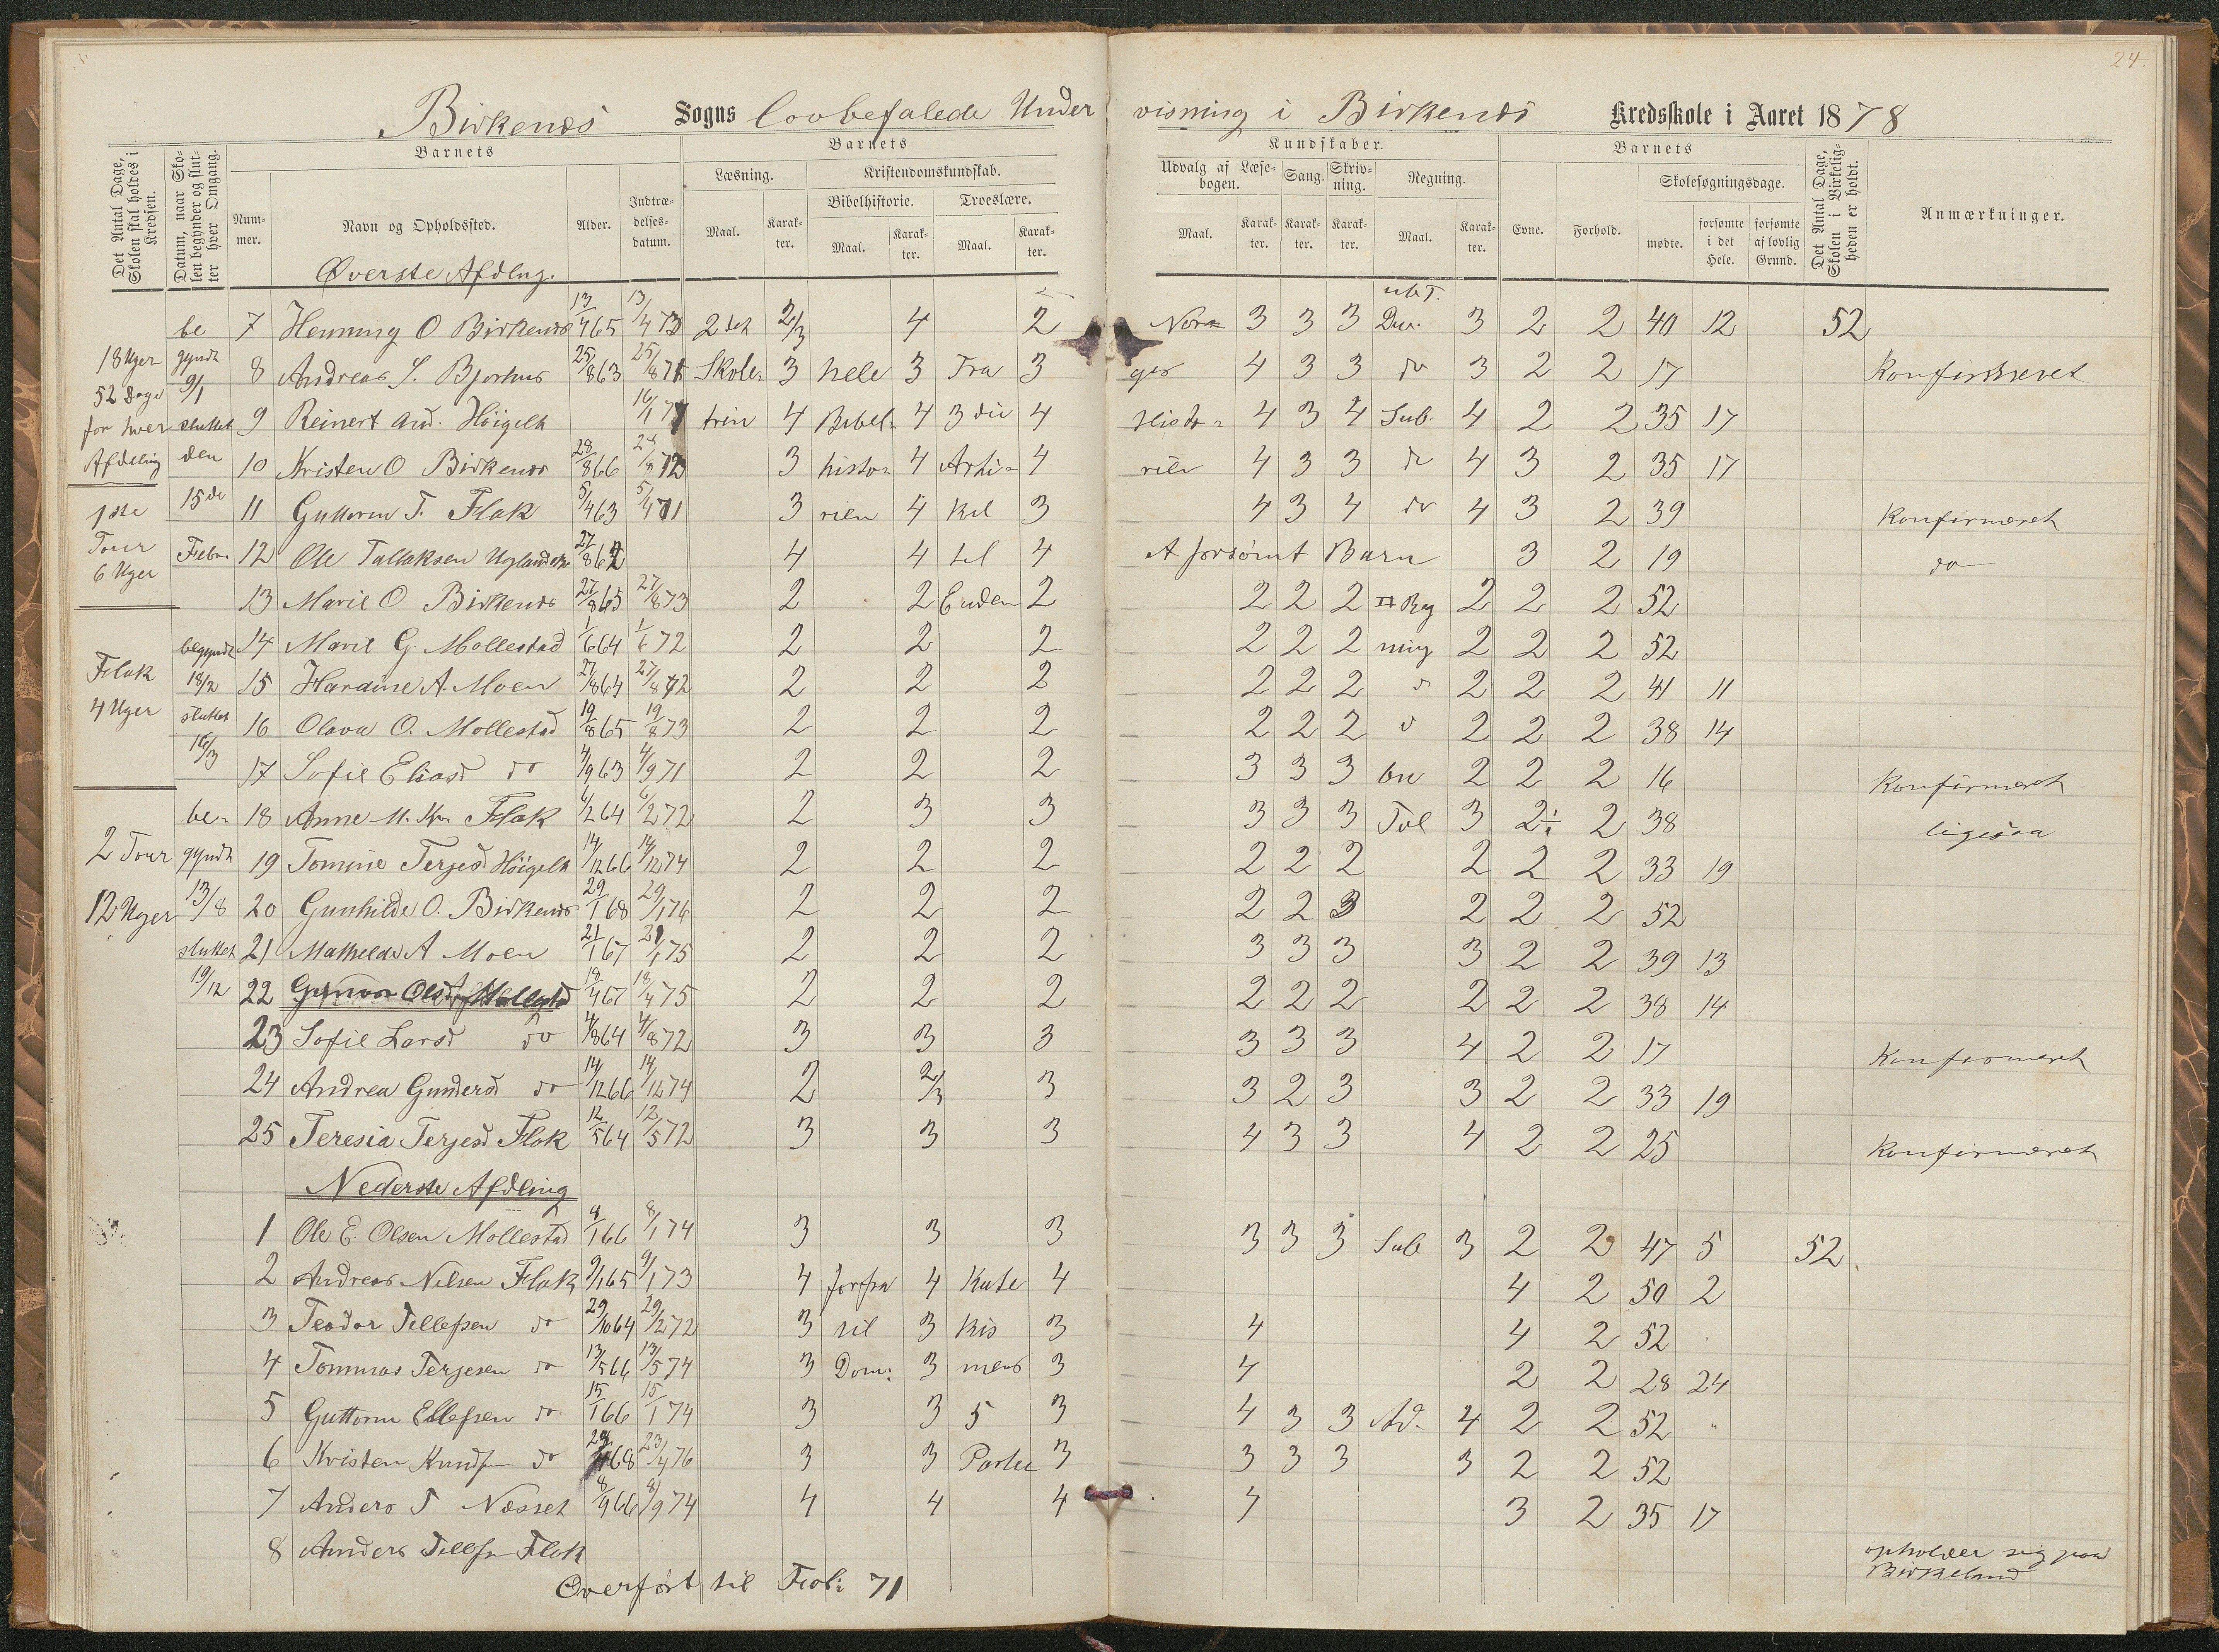 24.
Birkenes Sogns lovbefalede Undervisning i Birkenes Kredsskole i Aaret 1878
Det Antal Dage, Skolen skal holdes i Kredsen.
Datum, naar Skolen begynder og slutter hver Omgang.
Barnets
Nummer.
Navn og Opholdssted.
Alder.
Indtrædelsesdatum.
Barnets
Læsning.
Maal.
Karakter.
Kristendomskundskab.
Bibelhistorie.
Maal.
Karakter.
Troeslære.
Maal.
Karakter.
Kundskaber.
Udvalg af Læsebogen.
Maal.
Karakter.
Sang.
Karakter.
Skrivning.
Karakter.
Regning.
Maal.
Karakter.
Barnets
Evne.
Forhold.
Skolesøgningsdage.
mødte.
forsømte i det Hele.
forsømte af lovlig Grund.
Det Antal Dage, Skolen i Virkeligheden er holdt.
Anmærkninger.
Øverste Afdlng.
be 7 Henning O Birkenes 13/4 65 13/4 73 2det 2/3 4 2 Nor= 3 3 3 Div. 3 2 2 40 12 52
18 Uger gyndt 8 Andreas S. Bjorhus 25/8 63 25/8 71 Skole= 3 hele 3 Fra 3 ges 4 3 3 do 3 2 2 17 Konfirmeret
52 Dage 9/1
for hver sluttet 9 Reinert And. Høigelt 16/1 71 trin 4 Bibel= 4 3die 4 Histo= 4 3 4 Sub. 4 2 2 35 17
Afdeling den 10 Kristen O Birkenes 28/8 66 28/8 72 3 histo= 4 Arti= 4 rien 4 3 3 do 4 3 2 35 17
1ste 15de 11 Guttorm T. Flak 5/4 63 5/4 71 3 rien 4 kel 3 4 3 4 do 4 3 2 39 Konfirmeret
Tour Febr. 12 Ole Tallaksen 27/8 62 4 4 til 4 A forsømt Barn 3 2 19 do
6 Uger
13 Marie O Birkenes 27/8 65 27/8 73 2 2 Enden 2 2 2 2 Reg 2 2 2 52
begyndt 14 Marie G. Mollestad 1/6 64 1/6 72 2 2 2 2 2 2 ning 2 2 2 52
Flak 18/2 15 Hardine A. Moen 27/8 64 27/8 72 2 2 2 2 2 2 2 2 2 41 11
4 Uger sluttet 16 Olava O. Mollestad 19/8 65 19/8 73 2 2 2 2 2 2 2 2 2 38 14
16/3 17 Sofie Eliasd do 4/9 63 4/9 71 2 2 2 3 3 3 2 2 2 16 Konfirmeret
be= 18 Anne M. Kr. Flak 6/2 64 6/2 72 2 3 3 3 3 3 3 2 38 ligesaa
2 Tour gyndt 19 Tomine Terjesd Høigelt 14/12 66 14/12 74 2 2 2 2 2 2 2 2 2 33 19
12 Uger 13/8 20 Gunhilde O. Birkenes 29/1 68 29/1 76 2 2 2 2 2 3 2 2 2 52
sluttet 21 Mathilde A Moen 21/1 67 21/1 75 2 2 2 3 3 3 3 2 2 39 13
19/12 22 18/4 67 18/4 75 2 2 2 2 2 2 2 2 2 38 14
23 Sofie Larsd do 4/8 64 4/8 72 3 3 3 3 3 3 4 2 2 17 Konfirmeret
24 Andrea Gundersd do 14/12 66 14/12 74 2 2/3 3 3 2 3 3 2 2 33 19
25 Teresia Terjesd Flak 12/5 64 12/5 72 3 3 3 4 3 3 4 2 2 25 Konfirmeret
Nederste Afdling
1 Ole E. Olsen Mollestad 8/1 66 8/1 74 3 3 3 3 3 3 Sub 3 2 2 47 5 52
2 Andreas Nilsen Flak 9/1 65 9/1 73 4 forfra 4 Kate 4 4 2 50 2
3 Teodor Tellefsen do 29/10 64 29/2 72 3 til 3 kis 3 4 4 2 52
4 Tommas Terjesen do 13/5 66 13/5 74 3 Dom: 3 mens 3 4 2 2 28 24
5 Guttorm Ellefsen do 15/1 66 15/1 74 3 3 5 3 4 3 3 Ad. 4 2 2 52 "
6 Kristen Knudsen do 23/4 68 23/4 76 3 3 Parter 3 3 3 3 3 2 2 52
7 Anders T Næsset 8/9 66 8/9 74 4 4 4 4 3 2 35 17
8 Anders Tellfsn Flak opholder sig paa Birkeland
Overført til Fol: 71